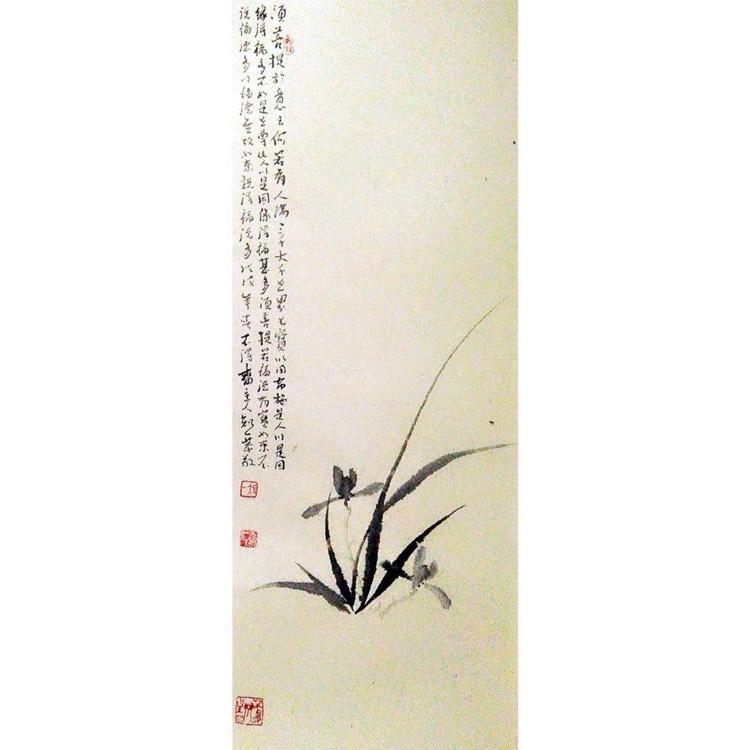 須菩提於意云何若有人滿三千大千世界七寶以用布施是人以是因
緣得福多不如是世尊此人以是因緣得福甚多須菩提若福德有實如來不
說福德多以福德無故如來說得福德多 年 不得齋主人 敬